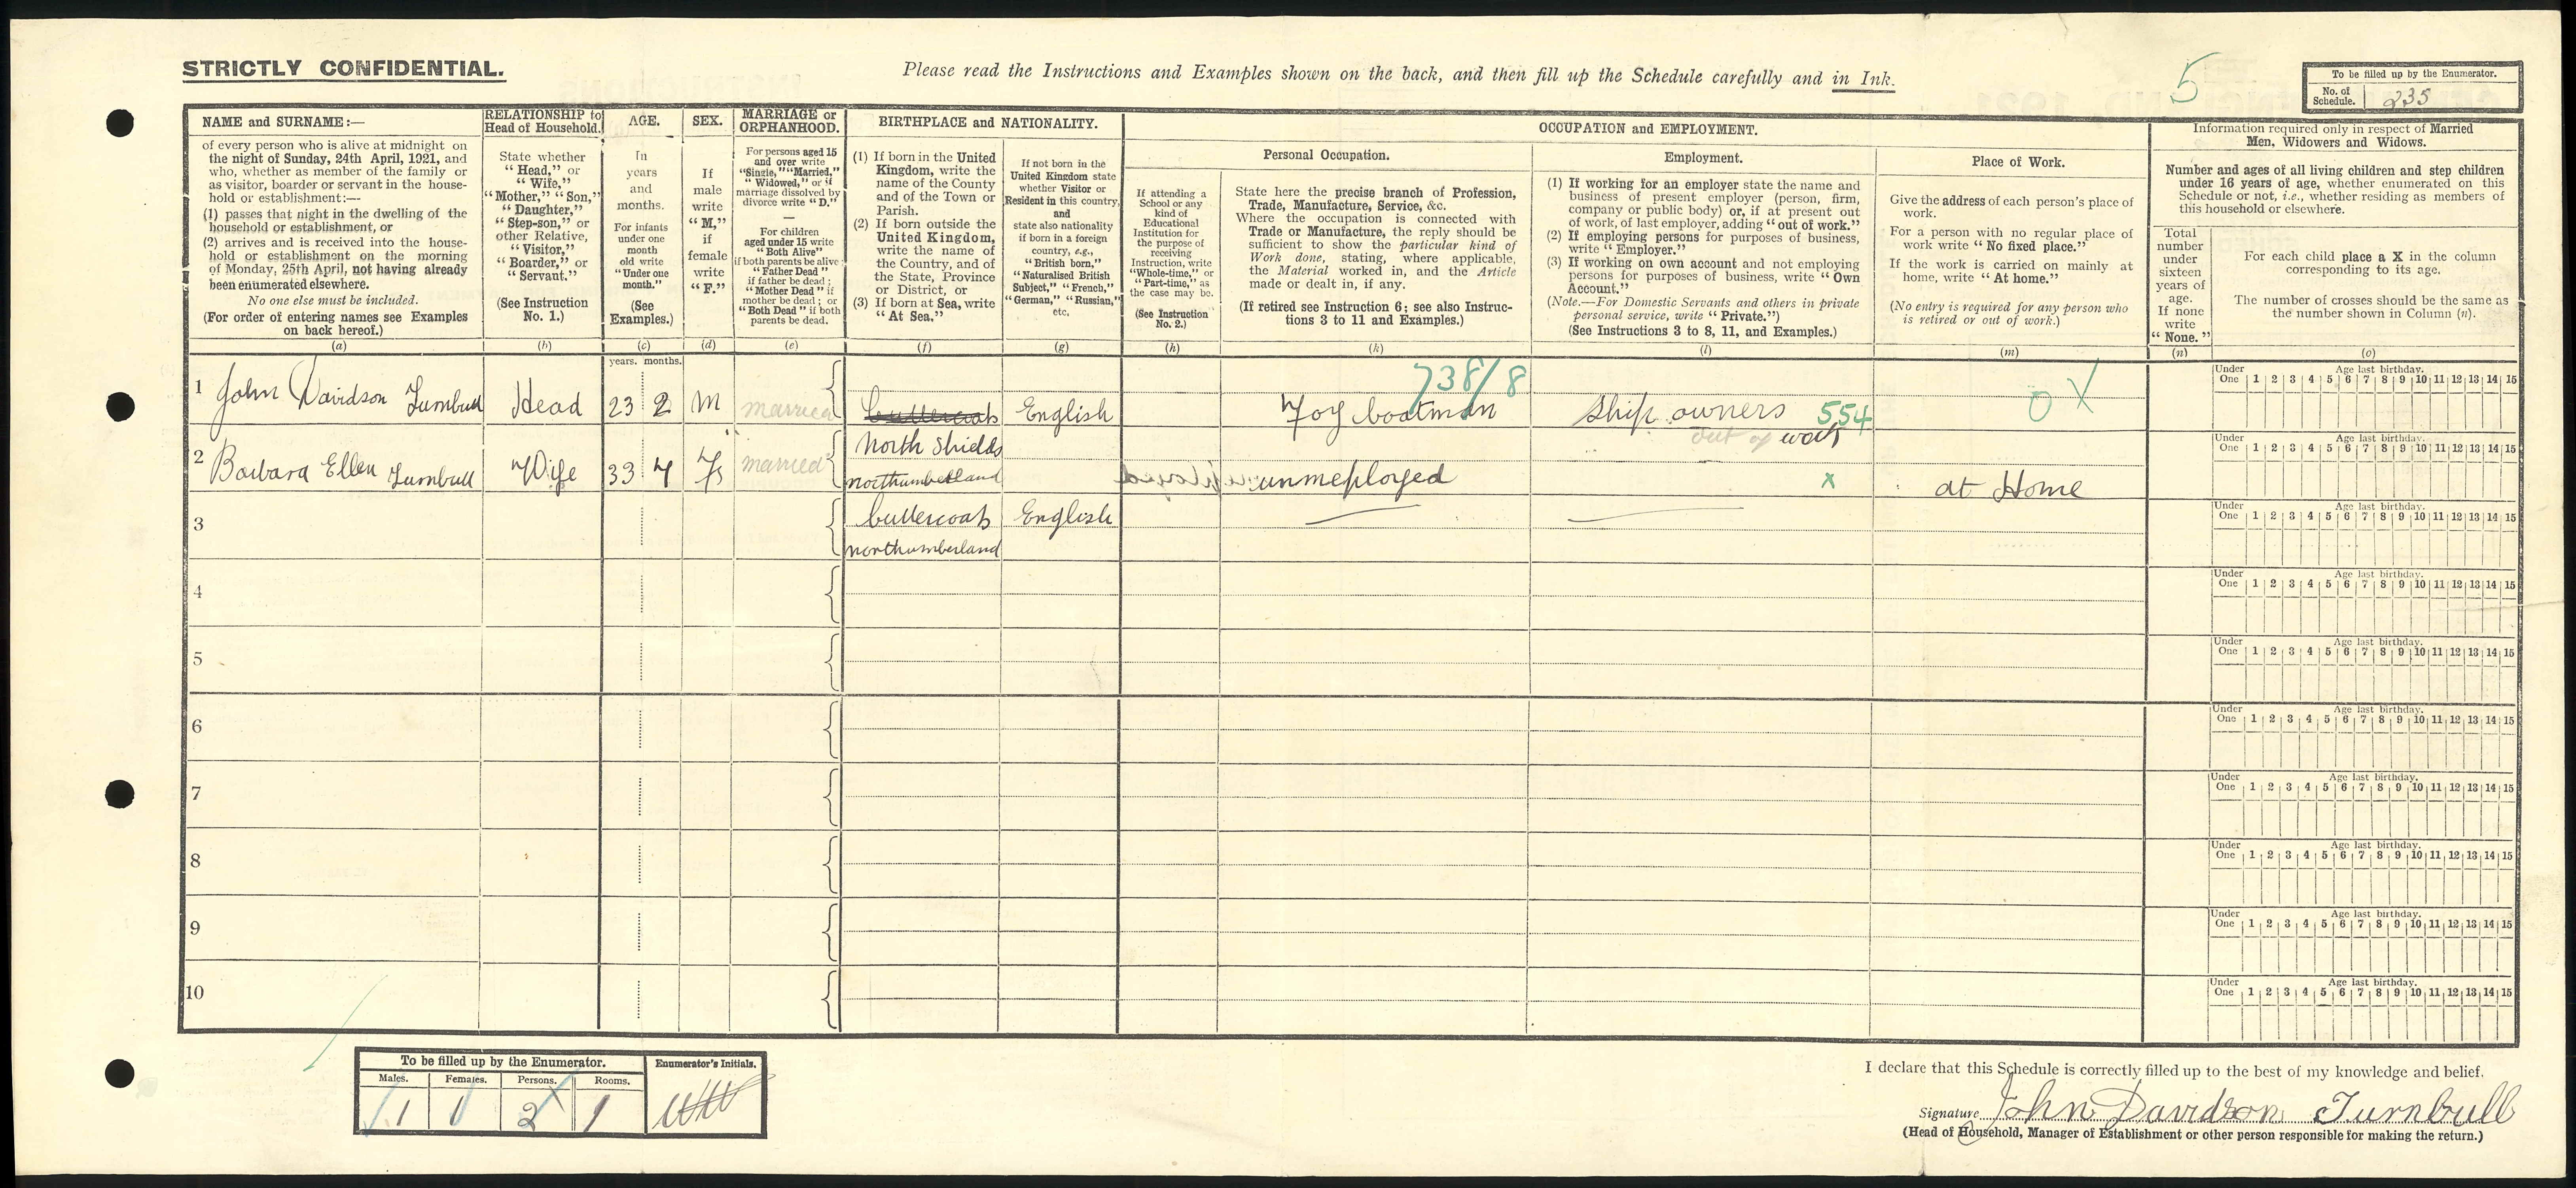 STRICTLY CONFIDENTIAL.
Please read the Instructions and Examples shown on the back, and then fill up the Schedule carefully and in Ink.
5
To be filled up by the Enumerator.
No. of Schedule. 235
NAME and SURNAME:—
of every person who is alive at midnight on
the night of Sunday, 24th April, 1921, and
who, whether as member of the family or
as visitor, boarder or servant in the house-
hold or establishment:—
(1) passes that night in the dwelling of the
household or establishment, or
(2) arrives and is received into the house-
hold or establishment on the morning
of Monday, 25th April, not having already
been enumerated elsewhere.
No one else must be included.
(For order of entering names see Examples
on back hereof.)
(a)
RELATIONSHIP to
Head of Household.
State whether
"Head," or
"Wife,"
"Mother," "Son,"
"Daughter,"
"Step-son," or
other Relative,
"Visitor,"
"Boarder," or
"Servant."
(See Instruction
No. 1.)
(b)
AGE.
In
years
and
months.
For infants
under one
month
old write
"Under one
month."
(See
Examples.)
(c)
SEX.
If
male
write
"M,"
if
female
write
"F."
(d)
MARRIAGE or
ORPHANHOOD.
For persons aged 15
and over write
"Single," "Married,"
"Widowed," or if
marriage dissolved by
divorce write "D."
—
For children
aged under 15 write
"Both Alive"
if both parents be alive;
"Father Dead"
if father be dead;
"Mother Dead" if
mother be dead; or
"Both Dead" if both
parents be dead.
(e)
BIRTHPLACE and NATIONALITY.
(1) If born in the United
Kingdom, write the
name of the County
and of the Town or
Parish.
(2) If born outside the
United Kingdom,
write the name of
the Country, and of
the State, Province
or District, or
(3) If born at Sea, write
"At Sea."
(f)
If not born in the
United Kingdom state
whether Visitor or
Resident in this country,
and
state also nationality
if born in a foreign
country, e.g.,
"British born."
"Naturalised British
Subject," "French,"
"German," "Russian,"
etc.
(g)
OCCUPATION and EMPLOYMENT.
Personal Occupation.
If attending a
School or any
kind of
Educational
Institution for
the purpose of
receiving
Instruction, write
"Whole-time," or
"Part-time," as
the case may be.
(See Instruction
No. 2.)
(h)
State here the precise branch of Profession,
Trade, Manufacture, Service, &c.
Where the occupation is connected with
Trade or Manufacture, the reply should be
sufficient to show the particular kind of
Work done, stating, where applicable,
the Material worked in, and the Article
made or dealt in, if any.
(If retired see Instruction 6; see also Instruc-
tions 3 to 11 and Examples.)
(k)
Employment.
(1) If working for an employer state the name and
business of present employer (person, firm,
company or public body) or, if at present out
of work, of last employer, adding "out of work."
(2) If employing persons for purposes of business,
write "Employer."
(3) If working on own account and not employing
persons for purposes of business, write "Own
Account."
(Note.—For Domestic Servants and others in private
personal service, write "Private.")
(See Instructions 3 to 8, 11, and Examples.)
(l)
Place of Work.
Give the address of each person's place of
work.
For a person with no regular place of
work write "No fixed place."
If the work is carried on mainly at
home, write "At home."
(No entry is required for any person who
is retired or out of work.)
(m)
Information required only in respect of Married
Men, Widowers and Widows.
Number and ages of all living children and step children
under 16 years of age, whether enumerated on this
Schedule or not, i.e., whether residing as members of
this household or elsewhere.
Total
number
under
sixteen
years of
age.
If none
write
"None."
(n)
For each child place a X in the column
corresponding to its age.
The number of crosses should be the same as
the number shown in Column (n).
(o)
years. months.
1 John Davidson Turnbull Head 23 2 M married Cullercoats English Foy boatman 738/8 Ship owners 554 0 X
out of work
North Shields
2 Barbara Ellen Turnbull Wife 33 7 F married northumberland unmeployed x at Home
3 Cullercoats English
northumberland
4
5
6
7
8
9
10
Under One Age last birthday. 1 2 3 4 5 6 7 8 9 10 11 12 13 14 15
Under One Age last birthday. 1 2 3 4 5 6 7 8 9 10 11 12 13 14 15
Under One Age last birthday. 1 2 3 4 5 6 7 8 9 10 11 12 13 14 15
Under One Age last birthday. 1 2 3 4 5 6 7 8 9 10 11 12 13 14 15
Under One Age last birthday. 1 2 3 4 5 6 7 8 9 10 11 12 13 14 15
Under One Age last birthday. 1 2 3 4 5 6 7 8 9 10 11 12 13 14 15
Under One Age last birthday. 1 2 3 4 5 6 7 8 9 10 11 12 13 14 15
Under One Age last birthday. 1 2 3 4 5 6 7 8 9 10 11 12 13 14 15
Under One Age last birthday. 1 2 3 4 5 6 7 8 9 10 11 12 13 14 15
Under One Age last birthday. 1 2 3 4 5 6 7 8 9 10 11 12 13 14 15
To be filled up by the Enumerator.
Males. Females. Persons. Rooms.
1 1 2 1
Enumerator's Initials.
I declare that this Schedule is correctly filled up to the best of my knowledge and belief.
Signature John Davidson Turnbull
(Head of Household, Manager of Establishment or other person responsible for making the return.)